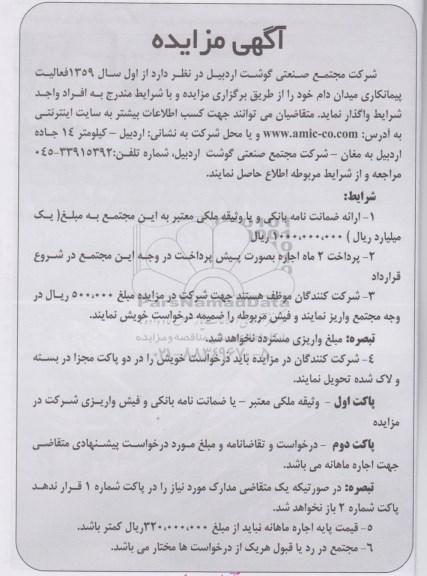 آگهی مزایده
شرکت مجتمع صنعتی گوشت اردبیل در نظر دارد از اول سال ۱۳۵۹فعالیت
پیمانکاری میدان دام خود را از طریق برگزاری مزایده و با شرایط مندرج به افراد واجد
شرایط واگذار نماید. متقاضیان می توانند جهت کسب اطلاعات بیشتر به سایت اینترنتی
به آدرس: www.amic-co.com و یا محل شرکت به نشانی: اردبیل - کیلومتر ۱۴ جاده
اردبیل به مغان - شرکت مجتمع صنعتی گوشت اردبیل، شماره تلفن:۳۳۹۱۵۳۹۲-۰۴۵
مراجعه و از شرایط مربوطه اطلاع حاصل نمایند.
شرایط:
۱- ارائه ضمانت نامه بانکی و یا وثیقه ملکی معتبر به این مجتمع به مبلغ( یک
میلیارد ریال ) ۱۰۰۰،۰۰۰،۰۰۰ ریال
۲- پرداخت ۲ ماه اجاره بصورت پیش پرداخت در وجه این مجتمع در شروع
قرارداد
۳- شرکت کنندگان موظف هستند جهت شرکت در مزایده مبلغ ۵۰۰،۰۰۰ ریال در
وجه مجتمع واریز نمایند و فیش مربوطه را ضمیمه درخواست خویش نمایند.
تبصره: مبلغ واریزی مسترد نخواهد شد.
۴- شرکت کنندگان در مزایده باید درخواست خویش را در دو پاکت مجزا در بسته
و لاک شده تحویل نمایند.
پاکت اول - وثیقه ملکی معتبر - یا ضمانت نامه بانکی و فیش واریزی شرکت در
مزایده
پاکت دوم - درخواست و تقاضانامه و مبلغ مورد درخواست پیشنهادی متقاضی
جهت اجاره ماهانه می باشد.
تبصره: در صورتیکه یک متقاضی مدارک مورد نیاز را در پاکت شماره ۱ قرار ندهد
پاکت شماره ۲ باز نخواهد شد.
۵- قیمت پایه اجاره ماهانه نباید از مبلغ ۳۲۰،۰۰۰،۰۰۰ریال کمتر باشد.
۶- مجتمع در رد یا قبول هریک از درخواست ها مختار می باشد.
ParsNamadData
۰۲۱-۸۸۳۴۹۶۷۰-۵